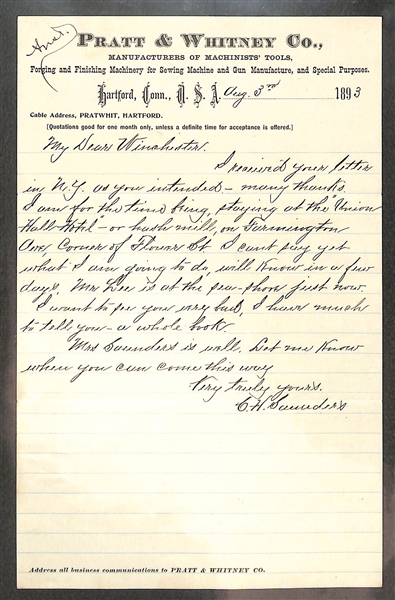 Ansd.
PRATT & WHITNEY CO.,
MANUFACTURERS OF MACHINISTS' TOOLS,
Forging and Finishing Machinery for Sewing Machine and Gun Manufacture, and Special Purposes.
Hartford, Conn., U. S. A. Aug. 3rd 1893
Cable Address, PRATWHIT, HARTFORD.
[Quotations good for one month only, unless a definite time for acceptance is offered.]
My Dear Winchester.
I received your letter
in N.Y. as you intended - many thanks.
I am for the time being, staying at the Union
Hall Hotel - or hash mill, on Farmington
Ave, Corner of Flower St. I cant say yet
what I am going to do, will know in a few
days. Mrs Lee is at the sea-shore just now.
I want to see you very bad, I have much
to tell you - a whole book.
Mrs Saunders is well. Let me know
when you can come this way
Very truly yours.
C. H. Saunders
Address all business communications to PRATT & WHITNEY CO.